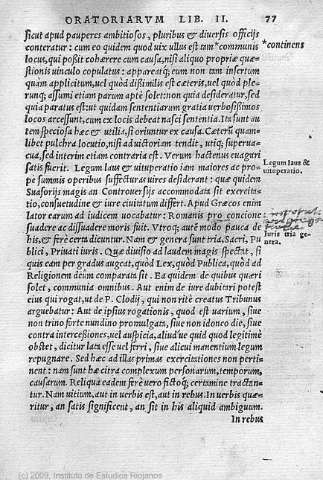 ORATORIARVM LIB. II. 77
sicut apud pauperes ambitiosos, pluribus & diuersis officijs
conteratur: cum eo quidem quod uix ullus est tam *communis
locus, qui possit cohærere cum causa, nisi aliquo propriæ quæ-
stionis uinculo copulatus: appareatq; eum non tam insertum
quàm applicitum, uel quod dissimilis est cæteris, uel quod ple-
runq; assumi etiam parum aptè solet: non quia desideratur, sed
quia paratus est: ut quidam sententiarum gratia uerbosissimos
locos arcessunt, cum ex locis debeat nasci sententia. Ita sunt au
tem speciosa hæc & utilia, si oriuntur ex causa. Cæterùm quan-
libet pulchra locutio, nisi ad uictoriam tendit, utiq; superua-
cua, sed interim etiam contraria est. Verum hactenus euagari
satis fuerit. Legum laus & uituperatio iam maiores ac pro-
pe summis operibus suffecturas uires desiderant: quæ quidem
Suasorijs magis an Controuersijs accommodata sit exercita-
tio, consuetudine & iure ciuitatum differt. Apud Græcos enim
lator earum ad iudicem uocabatur: Romanis pro concione
suadere ac dissuadere moris fuit. Vtroq; autē modo pauca de
his, & ferè certa dicuntur. Nam & genera sunt tria, Sacri, Pu
blici, Priuati iuris. Quæ diuisio ad laudem magis spectat, si
quis eam per gradus augeat, quòd Lex, quòd Publica, quòd ad
Religionem deûm comparata sit. Ea quidem de quibus quæri
solet, communia omnibus. Aut enim de iure dubitari potest
eius qui rogat, ut de P. Clodij, qui non ritè creatus Tribunus
arguebatur: Aut de ipsius rogationis, quod est uarium, siue
non trino forte nundino promulgata, siue non idoneo die, siue
contra intercessiones, uel auspicia, aliud'ue quid quod legitimè
obstet, dicitur lata esse uel ferri, siue alicui manentium legum
repugnare. Sed hæc ad illas primas exercitationes non perti-
nent: nam sunt hæ citra complexum personarum, temporum,
causarum. Reliqua eadem ferè uero fictoq; certamine tractan-
tur. Nam uitium, aut in uerbis est, aut in rebus. In uerbis quæ-
ritur, an satis significent, an sit in his aliquid ambiguum.
In rebus
*continens
Legum laus &
uituperatio.
Iuris tria ge-
nera.
(c) 2009, Instituto de Estudios Riojanos